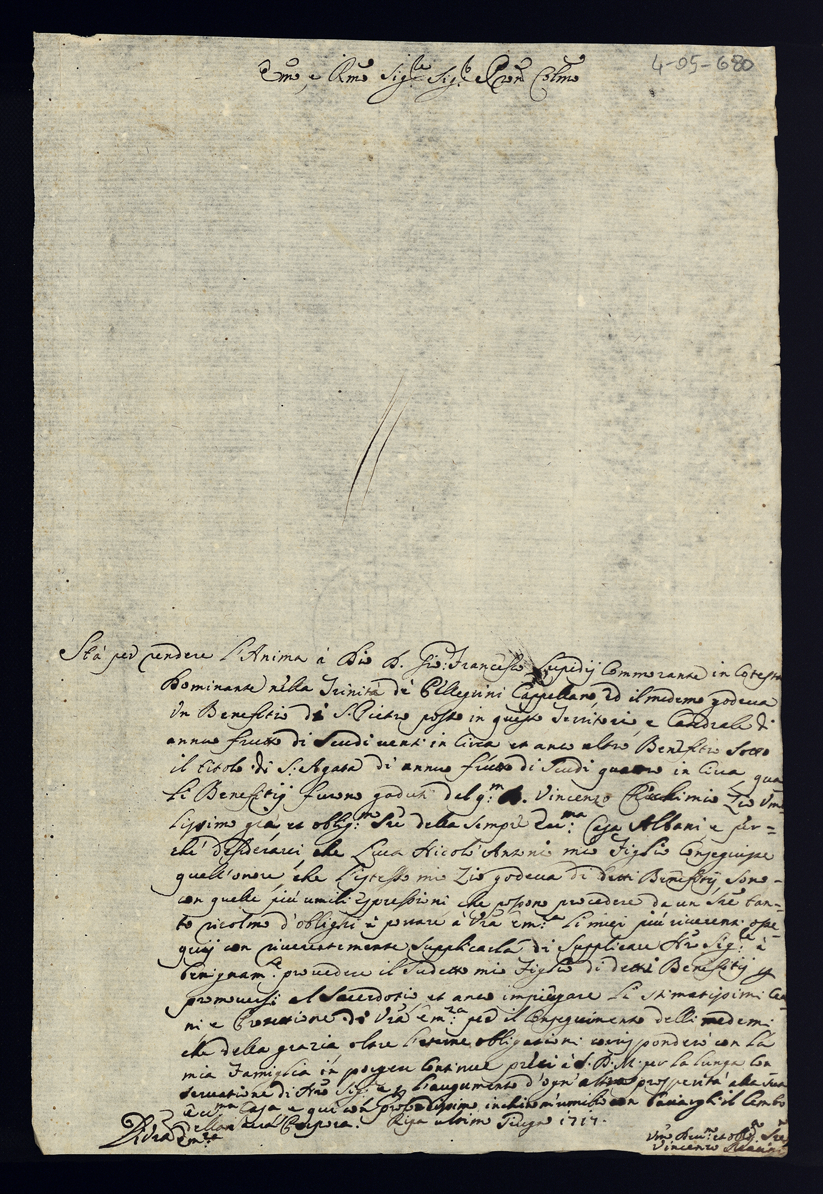 4-05-680
Em͞o, e R͞mo Sig.re Sig.r e Pron͞ Col͞mo
Stà per rendere l'Anima à Dio D. Gio: Francesco Lepidij Commorante in Cotesta
Dominante nella Trinità de Pellegrini Cappellano, ed il medemo godeva
Un Benefitio di S. Pietro posto in questo Territorio, e Catedrale di
annuo frutto di Scudi venti in Circa et anco altro Benefitio sotto
il titolo di S. Agata di annuo frutto di Scudi quatro in Circa qua
li Benefitij furono goduti dal q.m D. Vincenzo mio Zio Um-
lissimo già, et oblig.mo Sre della sempre Ecc.ma Casa Albani, e per=
che desiderarei che Luca Nicolò Antonio mio Figlio Conseguisse
quell'onore, che l'istesso mio Zio godeva di detti Benefitij sono
con quelle più umili espressioni che possono procedere da un Sre tan-
to ricolmo d'oblighi à portare à V͞ra Em.a li miei più riverenti osse-
quij con riverentemente supplicarla di supplicare N͞ro Sig.re à
benignam.e provedere il sudetto mio Figlio di detti Benefitij p
promoversi al Sacerdotio, et anco impiegare li stimatissimi Cen
ni e Protettione di V͞ra Em.za per il Conseguimento delli medemi
che della grazia oltre l'eterne obligationi corrisponderò con la
mia Famiglia in porgere Continue preci à S. D. M. per la lunga Con
servatione di N͞ro Sig.re e p l'augumento d'ogn'altra prosperità alla sua
Ecc.ma Casa e qui con profondissimo inchino umilio con baciargli il lembo
della Porpora. Ripa ultimo 1717.
Di V͞ra Em.za
Um͞o Dev.mo et obblig. Sre
Vincenzo